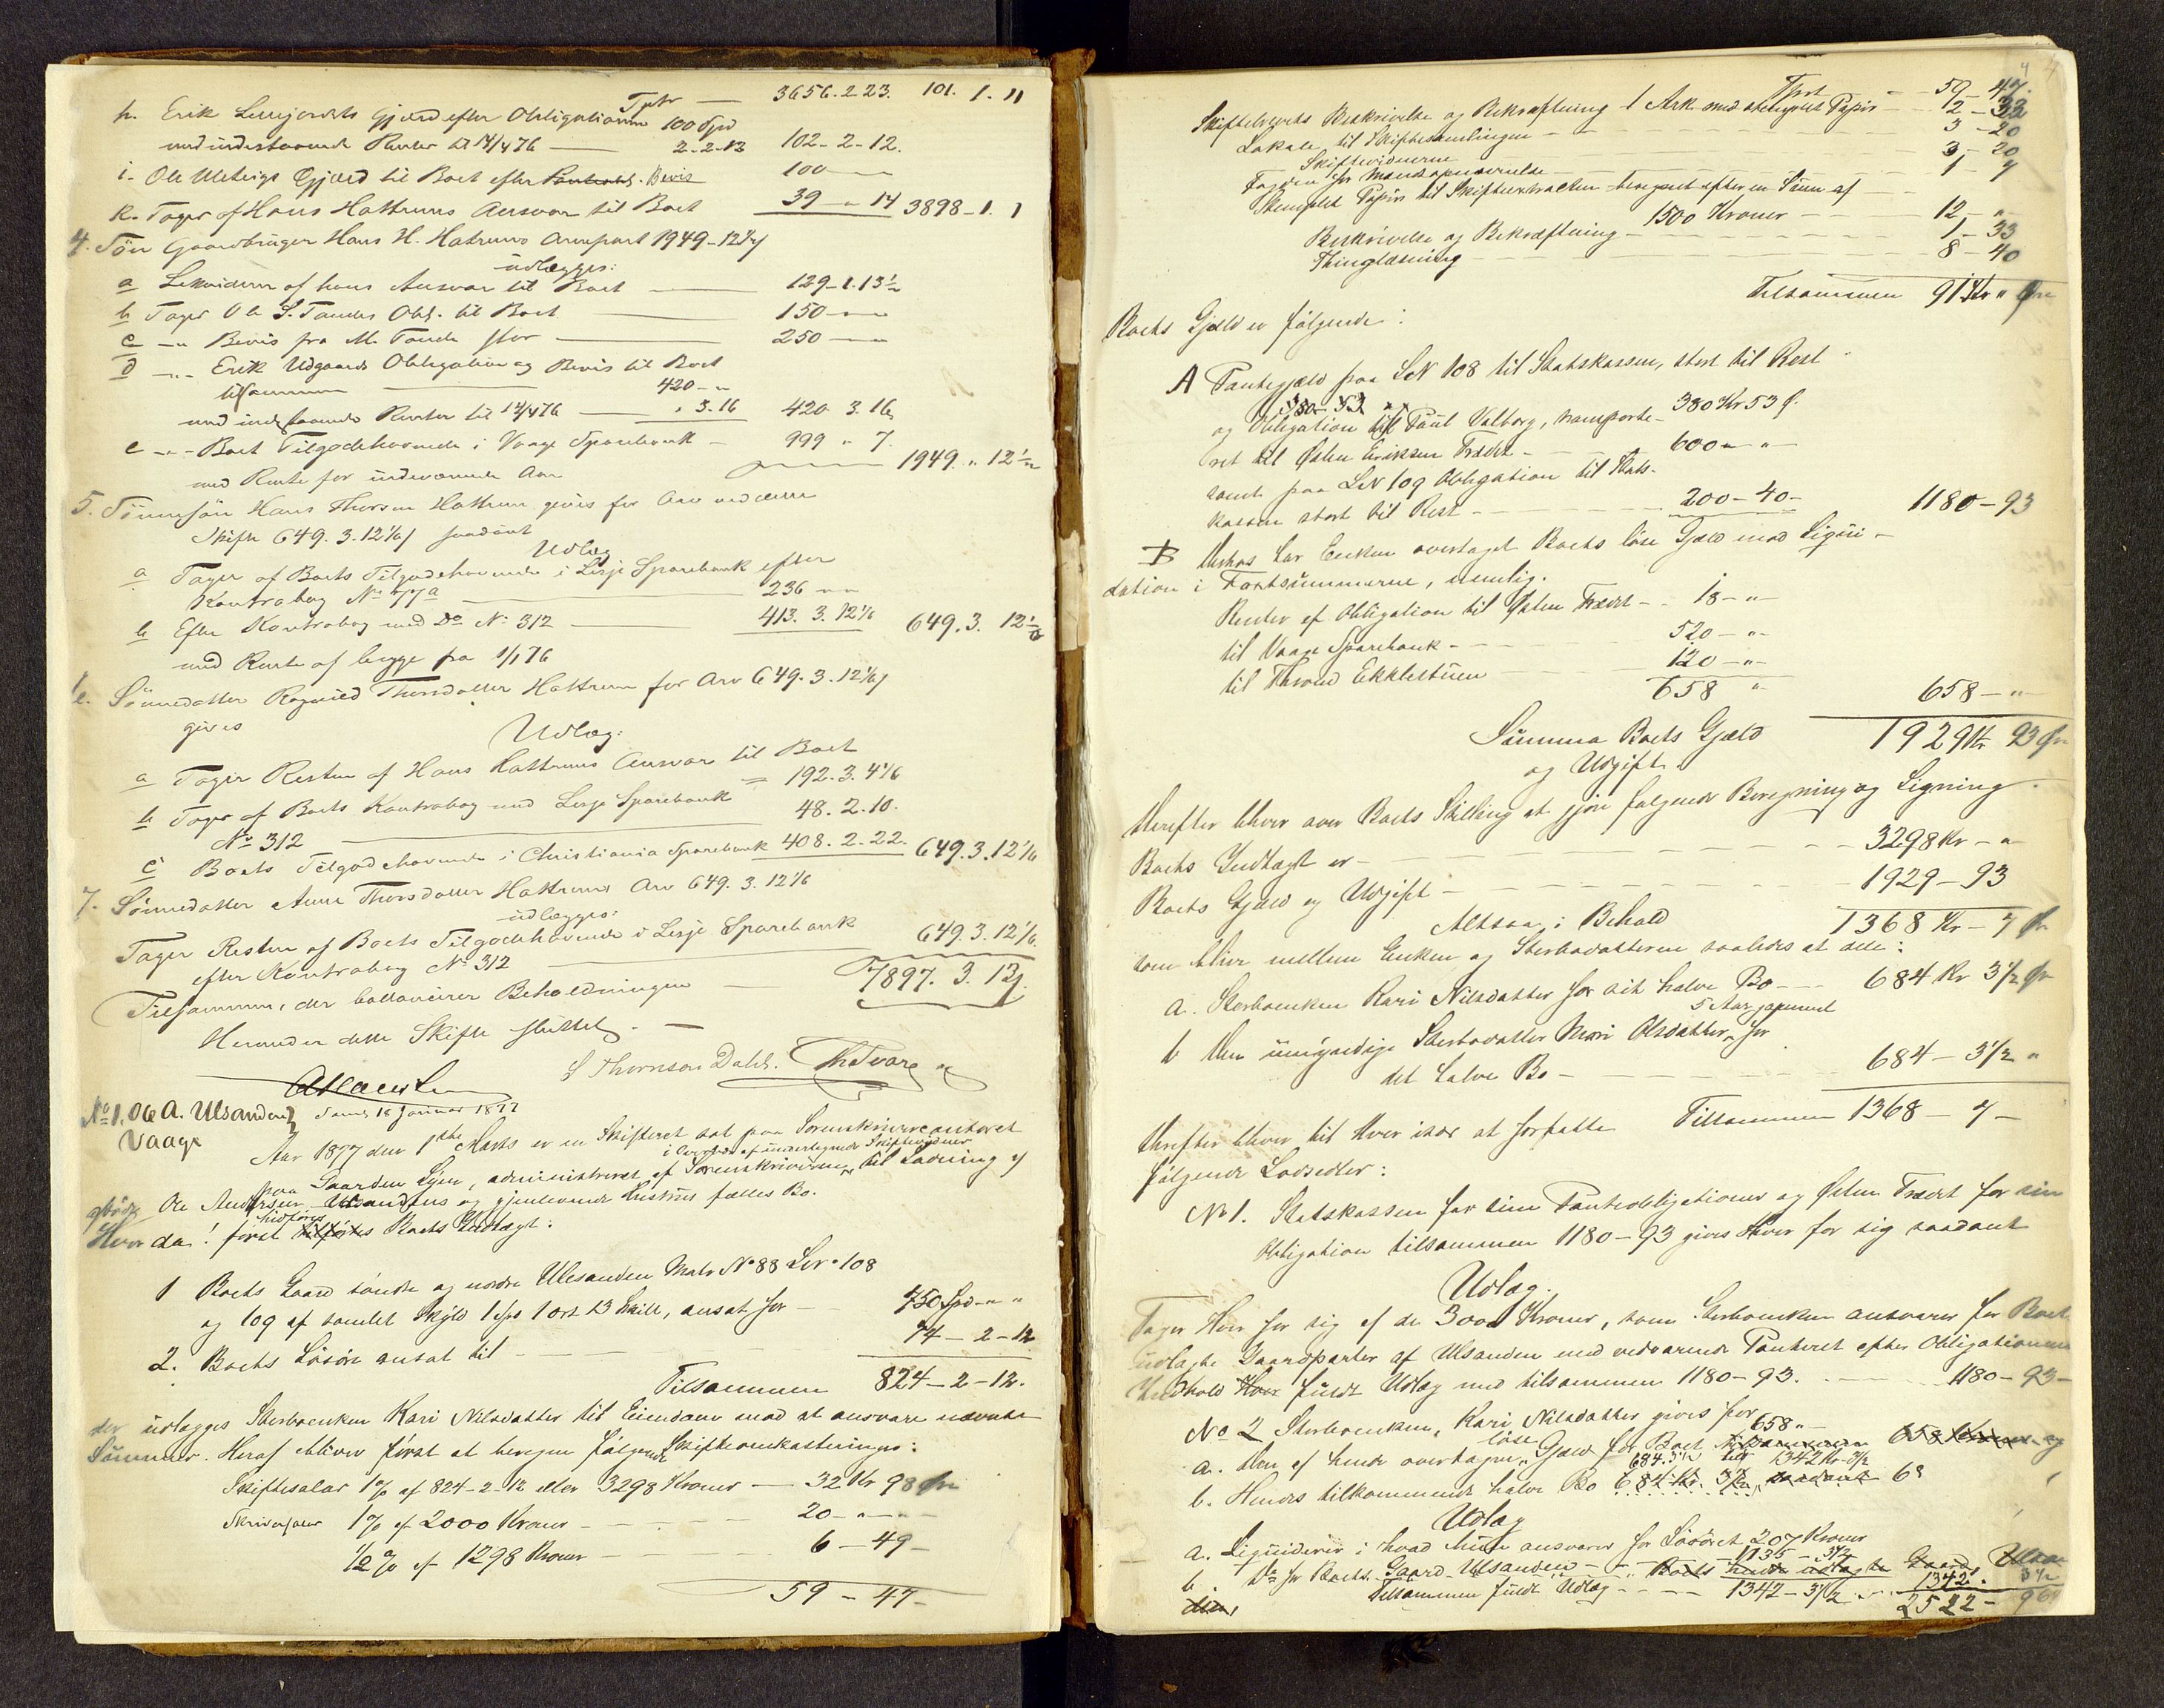 Tptr — 3656.2.23. 101. 1. 11
h. Erik Gjæld efter Obligationen 100 Spd
med indestaaende Renter til 14/4 76 — 2-2-12 102-2-12.
i. Ole Gjæld til Boet efter Bevis 100 —
k. Tager af Hans Hattrems Ansvar til Boet 39 " 14 3898-1. 1
4. Søn Gaardbruger Hans H. Hatrems Arvepart 1949-12½
udlægges:
a Likvideres af hans Ansvar til Boet — 129-1.13½
b Tager Ole S. Tandes Obl. til Boet — 150 —
c —"— Bevis fra M. Tande stor — 250 —
d —"— Erik Udgaards Obligation og Bevis til Boet
tilsammen — 420-"
med indestaaende Renter til 14/4 76 — " 3.16 420 3.16
e —"— Boet Tilgodehavende i Vaage Sparebank — 999 " 7.
med Rente for indeværende Aar — 1949. " 12½
5. Sønnesøn Hans Thorsen Hattrem gives for Arv ved dette
Skifte 649. 3. 12 1/6 saadant
Udlæg
a Tager af Boets Tilgodehavende i Lesje Sparebank efter
Kontrabog No 77a — 236 " "
b Efter Kontrabog med Do No 312 — 413. 3. 12 1/6 649. 3. 12 1/6
med Rente af begge fra 1/1 76
6. Sønnedatter Ragnild Thorsdatter Hattrem for Arv 649. 3. 12 1/6
gives
Udlæg:
a Tager Resten af Hans Hattrems Ansvar til Boet
= 192. 3. 4 1/6
b Tager af Boets Kontrabog med Lesje Sparebank
No 312 — 48. 2. 10.
c Boets Tilgodehavende i Christiania Sparebank 408. 2. 22. 649. 3. 12 1/6
7. Sønnedatter Anne Thorsdatter Hattrems Arv 649. 3. 12 1/6
udlægges:
Tager Resten af Boets Tilgodehavende i Lesje Sparebank
efter Kontrabog No 312 — 649. 3. 12 1/6.
Tilsammen, der ballancerer Beholdningen — 7897. 3. 13
Hermed er dette Skifte sluttet. —
S Thornson Dahl.
No 1. Ole A. Ulsanden 18 Januar 1877
Vaage
Aar 1877 den 1ste Marts er en Skifteret sat paa Sorenskrivercontoret
i Overvær af undertegnede Skiftevidner
paa Gaarden Ljen, administreret af Sorenskriveren til Lodning af
afdøde Ole Andersen Ulsandens og gjenlevende Enkes fælles Bo.
hidføres
Hvor da: først tilføres Boets Indtægt:
1 Boets Gaard søndre og nordre Ulesanden Matr No 88 Lno 108
og 109 af samlet Skyld 1 spd 1 ort 13 Skill, ansat for — 750 Spd " "
2. Boets Løsøre ansat til — 74-2-12
Tilsammen 824-2-12.
der udlægges Sterboenken Kari Nilsdatter til Eiendom mod at ansvare nævnte
Summer. Heraf bliver først at beregne følgende Skifteomkostninger:
Skiftesalær 1% af 824-2-12 eller 3298 Kroner — 32 Kr 98 Øre
Skriversalær 1% af 2000 Kroner — 20-"-
1/2 % af 1298 Kroner — 6-49-
59-47-
4
Tpst — 59-47.
Skiftebrevets Beskrivelse og Bekræftning 1 Ark med stemplet Papir — 12-33
Lokale til Skiftesamlingen — 3-20
Skiftevidnerne — 3-20
Fogden for Mandtapnævnelse — 1-7
Stemplet Papir til Skifteextracten beregnet efter en Sum af
1500 Kroner — 12-"
Beskrivelse og Bekræftning — 1-33
Thinglæsning — 8-40
Tilsammen 91 Kr " Øre
Boets Gjæld er følgende:
A Pantegjæld paa LN 108 til Statskassen, stort til Rest
380-53 — 380 Kr 53 Ø.
og Obligation til Paul Valborg, transporte-
ret til Østen Eriksen Trædet — 600 " "
samt paa LN 109 Obligation til Stats-
kassen stort til Rest — 200-40- 1180-93
B Desuden har Enken overtaget Boets løse Gjæld mod Liqui-
dation i Fortsummerne, nemlig.
Renter af Obligation til Østen Trædet — 18-"
til Vaage Sparebank — 520-"
til Thrond Ekklestuen — 120-"
658 " 658-"
Summa Boets Gjæld 1929 Kr 93 Øre
og Udgift
Derefter bliver over Boets Stilling at gjøre følgende Beregning og Ligning
Boets Indtægt er — 3298 Kr-"
Boets Gjæld og Udgift — 1929-93
Altsaa i Behold 1368 Kr-7 Øre
som bliver mellem Enken og Sterbodatteren saaledes at dele:
a. Sterboenken Kari Nilsdatter for sit halve Bo — 684 Kr 3½ Ør
5 Aar gammel
b Den umyndige Sterbodatter Mari Olsdatter, for
det halve Bo — 684-3½ "
Tilsammen 1368-7-
Derefter bliver til Hver især at forfatte
følgende Lodsedler:
No 1. Statskassen for sine Panteobligationer og Østen Trædet for sin
Obligation tilsammen 1180-93 gives Hver for sig saadant
Udlæg.
Tager Hver for sig af de 3000 Kroner, som Sterboenken ansvarer for Boets
udlagte Gaardparter af Ulsanden med vedvarende Panteret efter Obligationernes
Indhold Hver fuldt Udlæg med tilsammen 1180-93. — 1180-93-
No 2 Sterboenken, Kari Nilsdatter gives for
a. Den af hende overtagne løse Gjæld for Boet 658 "
b. Hendes tilkommende halve Bo 684.3½ 1342 Kr 3½
Udlæg
a. Liquiderer i hvad hun ansvarer for Løsøret 207 Kroner
b. Do for Boets Gaard Ulsanden — 1135-3½
Tilsammen fuldt Udlæg — 1342-3½ 1342. 3½
2522-96